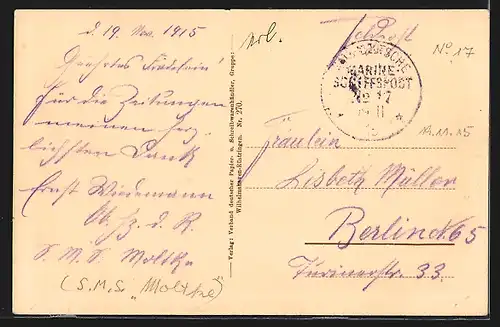 d. 19. Nov. 1915
Geehrtes Fräulein!
Für die Zeitungen
meinen herz-
lichsten Dank
Ernst Wiedemann
Ob. Hz. d. R.
S. M. S. Moltke
(S.M.S. „Moltke")
Verlag: Verband deutscher Papier- u. Schreibwarenhändler, Gruppe:
Wilhelmshaven-Rüstringen. Nr. 270.
Feldpost
No. 17
DEUTSCHE
MARINE-
SCHIFFSPOST
No 17
19 11
19.11.15
Fräulein
Lisbeth Müller
Berlin N 65
Turinerstr. 33.